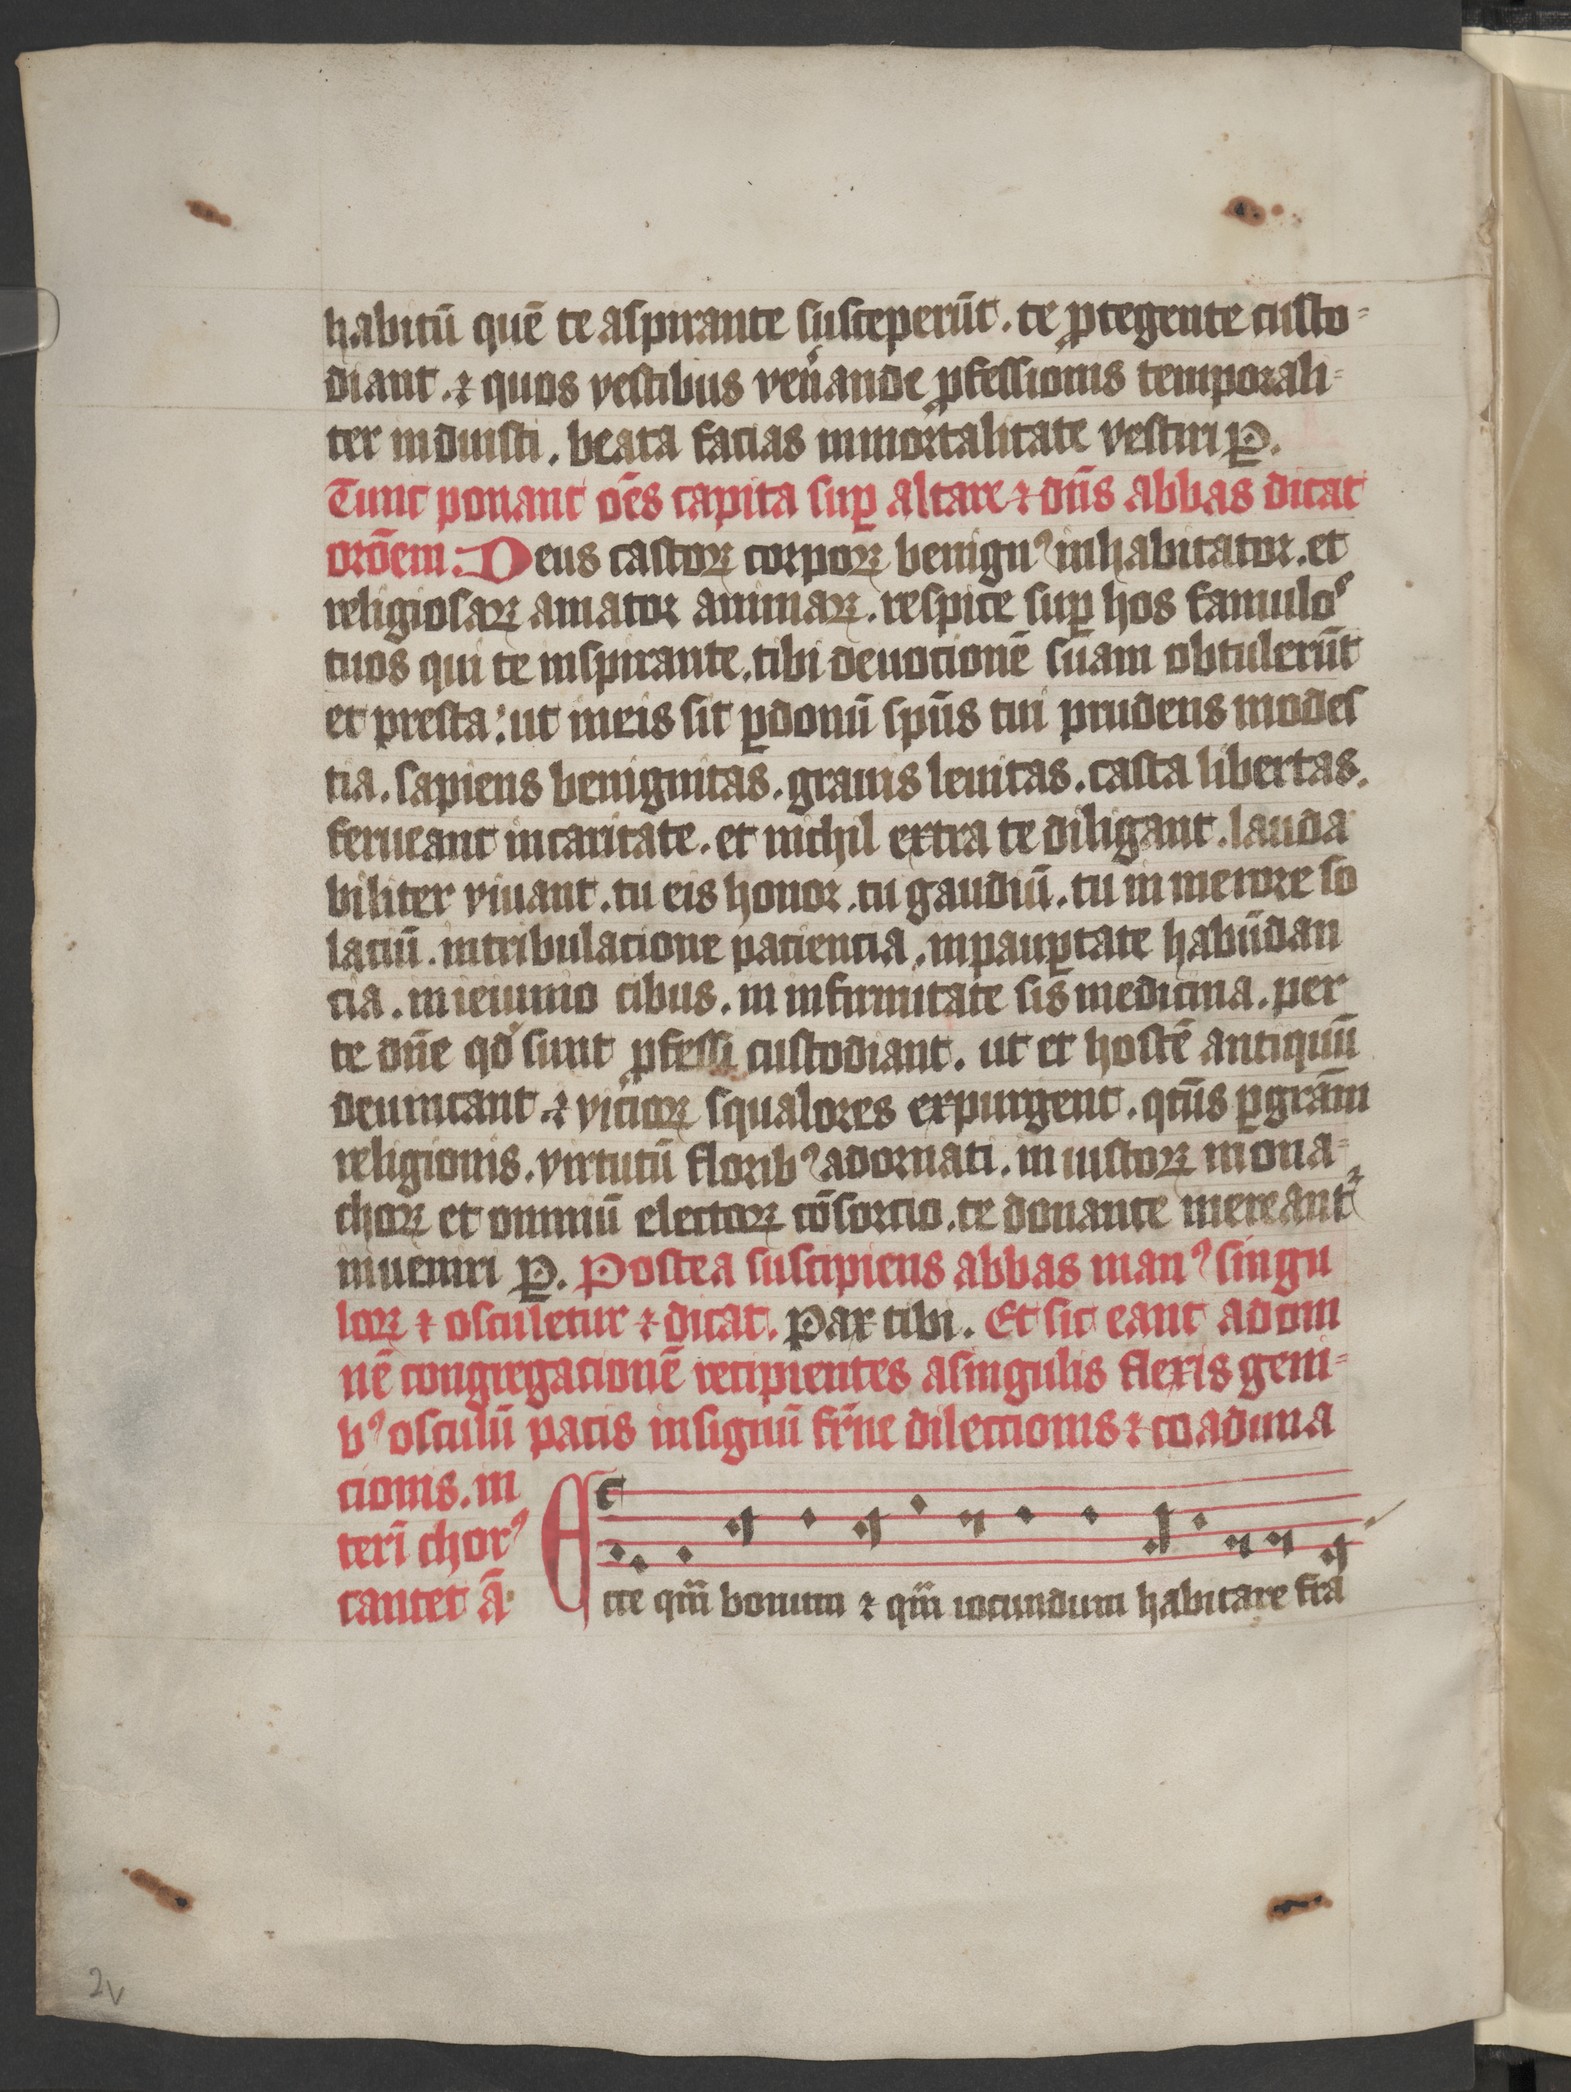 habitū quē te aspirante susceperūt. te ꝓtegente custo=
diant. ⁊ quos vestibus ven̾ande ꝓfessionis temporali=
ter induisti. beata facias inmortalitate vestiri P.
Tunc ponant oēs capita suꝑ altare ⁊ dn̄s abbas dicat
orōem. Deus castoꝝ corpoꝝ benignꝰ inhabitator. et
religiosaꝝ amator animaꝝ. respice suꝑ hos famulos
tuos qui te inspirante. tibi deuotionē suam obtulerūt
et presta: ut in eis sit ꝑ donū sp̄us tui prudens modes
tia. sapiens benignitas. grauis lenitas. casta libertas.
ferueant in caritate. et nichil extra te diligant. lauda
biliter viuant. tu eis honor. tu gaudiū. tu in merore so
laciū. in tribulacione patiencia. in pauꝑtate habūdan
cia. in ieiunio cibus. in infirmitate sis medicina. per
te dn̄e qđ sunt ꝓfessi custodiant. ut et hostē antiquū
deuincant ⁊ vicioꝝ squalores expurgent. qtn̄s ꝑ gr̄am
religionis. virtutū floribꝰ adornati. in iustoꝝ mona=
choꝝ et omniū electoꝝ cōsorcio. te donante mereant᷑
inueniri P. Postea suscipiens abbas manꝰ singu
loꝝ ⁊ osculetur ⁊ dicat. Pax tibi. Et sic eant ad om
nē congregacionē recipientes a singulis flexis geni=
bꝰ osculū pacis in signū fr̄ne dilectionis ⁊ coaduna
cionis. in
teri chorꝰ
cantet ā.
Ecce qm̄ bonum ⁊ qm̄ iocundum habitare fra
2v